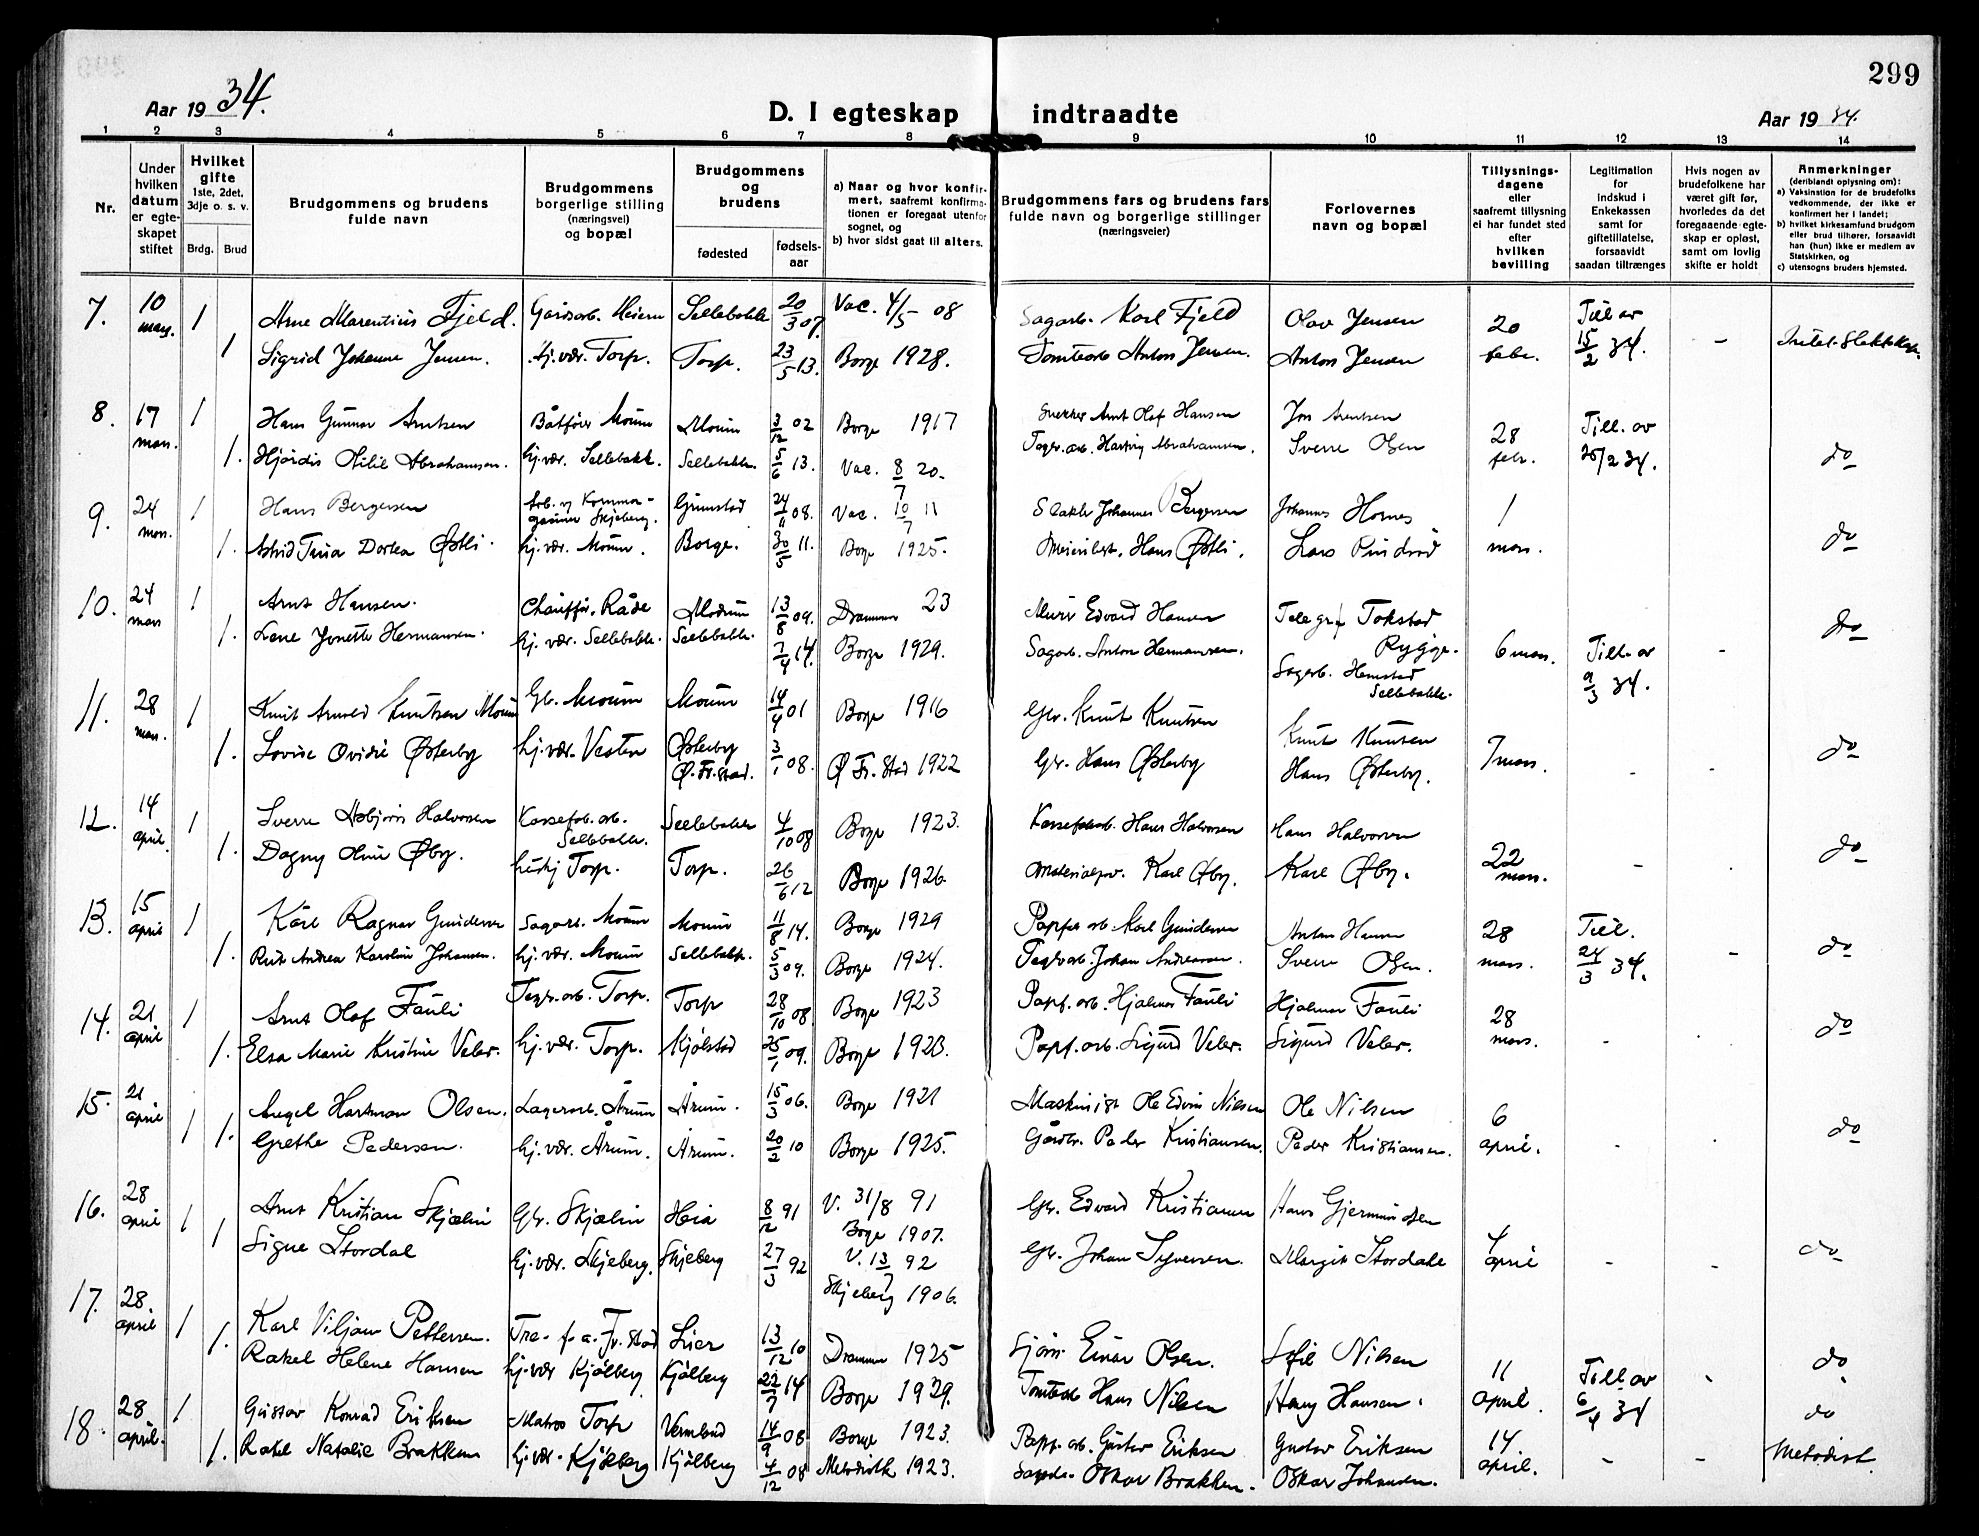 299
Aar 1934.
D. I egteskap indtraadte
Aar 1934.
1 2 3 4 5 6 7 8 9 10 11 12 13 14
Nr.
Under hvilken datum er egteskapet stiftet
Hvilket gifte 1ste, 2det, 3dje o. s. v.
Brdg. Brud
Brudgommens og brudens fulde navn
Brudgommens borgerlige stilling (næringsvei) og bopæl
Brudgommens og brudens
fødested
fødsels-aar
a) Naar og hvor konfirmert, saafremt konfirmationen er foregaat utenfor sognet, og
b) hvor sidst gaat til alters.
Brudgommens fars og brudens fars fulde navn og borgerlige stillinger (næringsveier)
Forlovernes navn og bopæl
Tillysnings-dagene eller saafremt tillysning ei har fundet sted efter hvilken bevilling
Legitimation for indskud i Enkekassen samt for giftetillatelse, forsaavidt saadan tiltrænges
Hvis nogen av brudefolkene har været gift før, hvorledes da det foregaaende egteskap er opløst, samt om lovlig skifte er holdt
Anmerkninger (deriblandt oplysning om):
a) Vaksination for de brudefolks vedkommende, der ikke er konfirmert her i landet;
b) hvilket kirkesamfund brudgom eller brud tilhører, forsaavidt han (hun) ikke er medlem av Statskirken, og
c) utensogns bruders hjemsted.
7. 10 mars. 1 Arne Marentius Fjeld. Gardsarb. Heiern Sellebakk 20/3 07. Vac. 4/5 08 Sagarb. Karl Fjeld Olav Jensen 20 febr. Till av 15/2 34. - Intet Slektskap.
1 Sigrid Johanne Jensen. hj. vær. Torp. Torp. 23/5 13. Borge 1928. Tomtearb Anton Jensen. Anton Jensen
8. 17 mars. 1 Hans Gunnar Arntsen Båtfører Moum Moum 3/12 02 Borge 1917 Snekker Arnt Olaf Hansen Jon Arntsen 28 febr. Till. av 25/2 34. do
1. Hjördis Otilie Abrahamsen. hj. vær. Sellebakk. Sellebakk. 5/6 13. Vac. 8/7 20. Tegv. arb. Hartvig Abrahamsen. Sverre Olsen
9. 24 mars. 1 Hans Bergersen Skjeberg. Grimstad 24/11 08. Vac. 10/7 11 Slakter Johannes Bergersen Johannes Hornes 1 mars. do
1. Astrid Tina Dortea Østli. hj. vær. Moum. Borge. 30/5 11. Borge 1925. Meieribest. Hans Østli. Lars
10. 24 mars 1 Arnt Hansen. Chauffør. Råde Modum 13/8 09. Drammen 23 Murer Edvard Hansen Telegraf Tokstad Rygge. 6 mars. Till. av 9/3 34. - do
1. Lene Jonette Hermansen. hj. vær. Sellebakk. Sellebakk. 7/4 14. Borge 1929. Sagarb. Anton Hermansen. Sagarb. Hemstad Sellebakk.
11. 28 mars. 1 Knut Arnold Knutsen Moum Gb. Moum Moum 14/4 01 Borge 1916 Gbr. Knut Knutsen Knut Knutsen 7 mars. - - do
1. Lovise Ovidie Østerby hj. vær. Vesten Østerby Ø. Fr.stad. 3/1 08. Ø Fr. Stad 1922 Gbr. Hans Østerby Hans Østerby.
12. 14 april. 1 Sverre Asbjørn Halvorsen Kassefab. arb. Sellebakk. Sellebakk 4/10 08 Borge 1923. Kassefabarb. Hans Halvorsen Hans Halvorsen 22 mars. - do
1. Dagny Øby. hushj Torp. Torp. 26/6 12 Borge 1926. Materialforv. Karl Øby. Karl Øby.
13. 15 april 1 Kåre Ragnar Gundersen Sagarb. Moum Moum 11/8 14. Borge 1929 Pappf arb Karl Gundersen Anton Hansen 28 mars. Till. 24/3 34. - do
1. Rut Andrea Karoline Johansen. hj. vær. Moum Sellebakk. 5/3 09. Borge 1924. Teglv. arb. Johan Andreassen. Sverre Olsen.
14. 21 april 1 Arnt Olaf Fauli Tegv. arb. Torp. Torp 28/10 08. Borge 1923 Papf. arb. Hjalmar Fauli Hjalmar Fauli 28 mars. - - do
1. Elsa Marie Kristine Veler. hj. vær. Torp. Kjølstad 25/1 09. Borge 1923. Papf. arb. Sigurd Veler. Sigurd Veler.
15. 21 april 1 Angel Hartman Olsen. Lagerarb. Årum Årum. 15/3 06. Borge 1921 Maskinist Ole Edvin Nilsen Ole Nilsen 6 april. - - do
1. Grethe Pedersen. hj. vær. Årum. Årum. 20/2 10 Borge 1925. Gårdbr. Peder Kristiansen. Peder Kristiansen.
16. 28 april 1 Arnt Kristian Skjælin Gbr. Skjælin Heia 8/12 91 V. 31/8 91 Borge 1907. Gbr. Edvard Kristiansen Hans Gjermundsen 4 april - - do
1 Signe Stordal hj. vær. Skjeberg. Skjeberg 27/3 92 V. 13/7 92 Skjeberg 1906. Gbr. Johan Syversen. Margit Stordal
17. 28. april 1 Karl Viljam Pettersen. Fr. stad Lier 13/12 10 Drammen 1925 Sjøm. Einar Olsen. Sofie Nilsen 11 april. Till av 6/4 34 - do
1. Rakel Helene Hansen hj. vær Kjølberg Kjølberg 22/7 14 Borge 1929. Tomtearb Hans Nilsen Hans Hansen. do
18. 28 april. 1 Gustav Konrad Eriksen Matros Torp Vermland 14/9 08 Borge 1923. Papf. arb. Gustav Eriksen Gustav Eriksen 14. april. - - Metodist.
1. Rakel Natalie Brakken hj. vær. Kjølberg Kjølberg 4/12 08 Metodistk 1923. Oskar Brakken. Oskar Johansen.